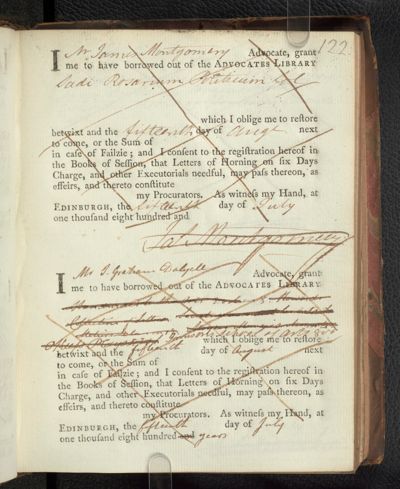 122
I Mr James Montgomery Advocate, grant
me to have borrowed out of the ADVOCATES LIBRARY
Sadi Rosarium Politicum
which I oblige me to reſtore
betwixt and the fifteenth day of Augt next
to come, or the Sum of
in caſe of Failzie; and I conſent to the regiſtration hereof in
the Books of Seſſion, that Letters of Horning on ſix Days
Charge, and other Executorials needful, may paſs thereon, as
effeirs, and thereto conſtitute
my Procurators. As witneſs my Hand, at
EDINBURGH, the fifteenth day of July
one thouſand eight hundred and
Jas. Montgomery
I Mr J. Graham Dalyell Advocate, grant
me to have borrowed out of the ADVOCATES LIBRARY
which I oblige me to reſtore
betwixt and the fifteenth day of August next
to come, or the Sum of
in caſe of Failzie; and I conſent to the regiſtration hereof in
the Books of Seſſion, that Letters of Horning on ſix Days
Charge, and other Executorials needful, may paſs thereon, as
effeirs, and thereto conſtitute
my Procurators. As witneſs my Hand, at
EDINBURGH, the fifteenth day of July
one thouſand eight hundred and years